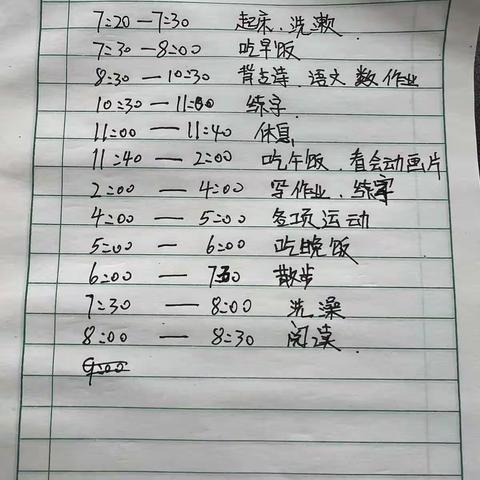 7:20—7:30 起床、洗漱
7:30—8:00 吃早饭
8:30—10:30 背古诗、语文 数 作业
10:30—11:00 练字
11:00—11:40 休息
11:40—2:00 吃午饭、看会动画片
2:00—4:00 写作业、练字
4:00—5:00 各项运动
5:00—6:00 吃晚饭
6:00—7:30 散步
7:30—8:00 洗澡
8:00—8:30 阅读
9:00